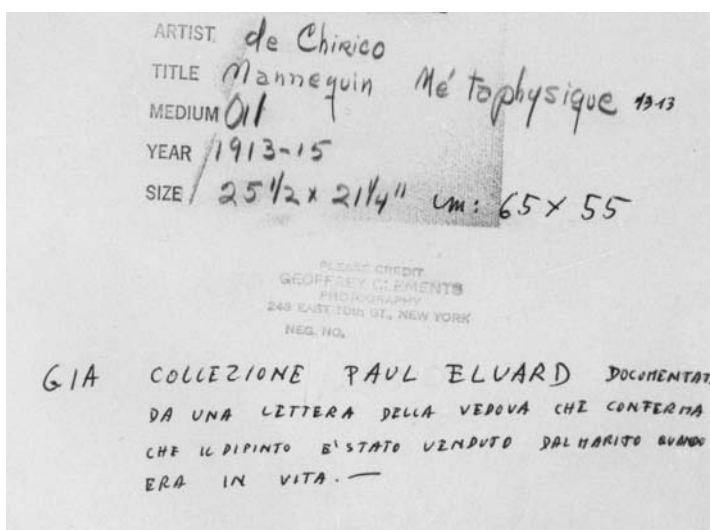 ARTIST de Chirico
TITLE Mannequin Métaphysique 1913
MEDIUM Oil
YEAR 1913-15
SIZE 25 1/2 x 21 1/4" cm: 65 x 55
PLEASE CREDIT
GEOFFREY CLEMENTS
PHOTOGRAPHY
243 EAST 10th ST., NEW YORK
NEG. NO.
GIA COLLEZIONE PAUL ELUARD DOCUMENTAT
DA UNA LETTERA DELLA VEDOVA CHE CONFERMA
CHE IL DIPINTO E' STATO VENDUTO DAL MARITO QUANDO
ERA IN VITA. —